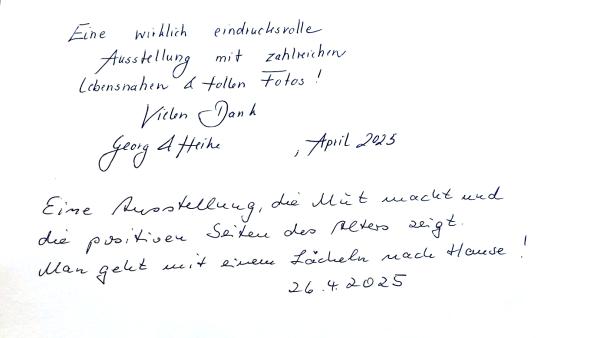 Eine wirklich eindrucksvolle
Ausstellung mit zahlreichen
Lebensnahen & tollen Fotos !
Vielen Dank
Georg & Heike , April 2025
Eine Ausstellung, die Mut macht und
die positiven Seiten des Alters zeigt.
Man geht mit einem Lächeln nach Hause !
26.4.2025